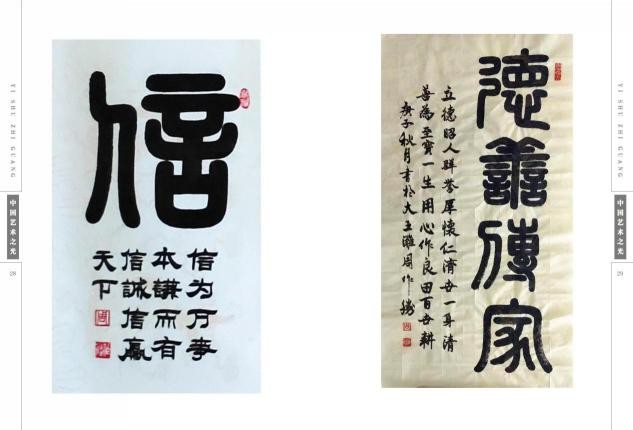 YI SHU ZHI GUANG
中国艺术之光
28
信
信为万事
本謙而有
信誠信贏
天下
德善傳家
立德昭人群誉厚懷仁濟世一身清
善為至寶一生用心作良田百世耕
庚子秋月書於大王灘周作勝
YI SHU ZHI GUANG
中国艺术之光
29